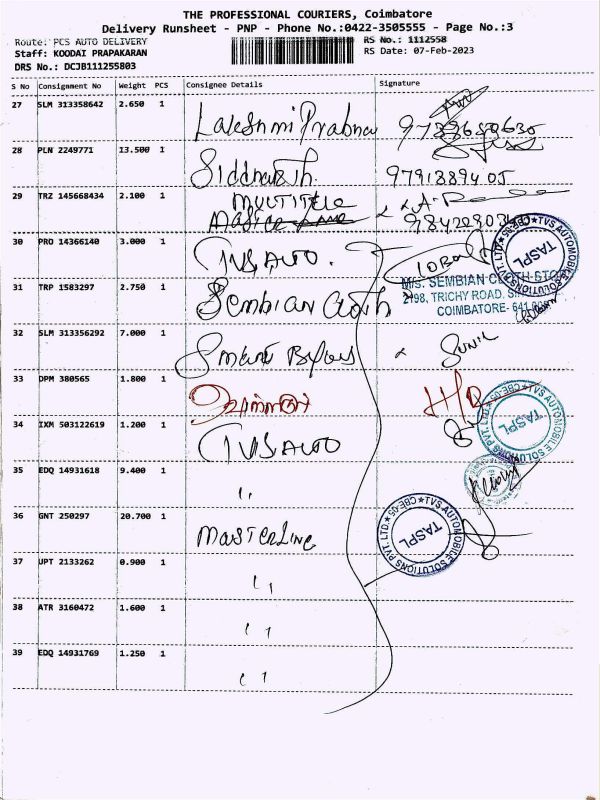 THE PROFESSIONAL COURIERS, Coimbatore
Delivery Runsheet - PNP - Phone No.:0422-3505555 - Page No.:3
Route: PCS AUTO DELIVERY
RS No.: 1112558
Staff: KOODAI PRAPAKARAN
RS Date: 07-Feb-2023
DRS No.: DCJB111255803
S No Consignment No Weight PCS Consignee Details Signature
27 SLM 313358642 2.650 1 Lakshmi Prabha
28 PLN 2249771 13.500 1 Siddharth 9791889405
29 TRZ 145668434 2.100 1 MULTITELE
30 PRO 14366140 3.000 1 TVS AUTO.
31 TRP 1583297 2.750 1 Sembian Cloth
M/s. SEMBIAN CLOTH STO
2198, TRICHY ROAD,
COIMBATORE- 641
32 SLM 313356292 7.000 1 Smart Sunil
33 DPM 380565 1.800 1
34 IXM 503122619 1.200 1 TVS AUTO
35 EDQ 14931618 9.400 1 "
36 GNT 250297 20.700 1 MASTERLINE
37 UPT 2133262 0.900 1 "
38 ATR 3160472 1.600 1 "
39 EDQ 14931769 1.250 1 "
TVS AUTOMOBILE SOLUTIONS PVT. LTD. CBE-05
TASPL
TVS AUTOMOBILE SOLUTIONS PVT. LTD. CBE-05
TASPL
TVS AUTOMOBILE SOLUTIONS PVT. LTD. CBE-05
TASPL